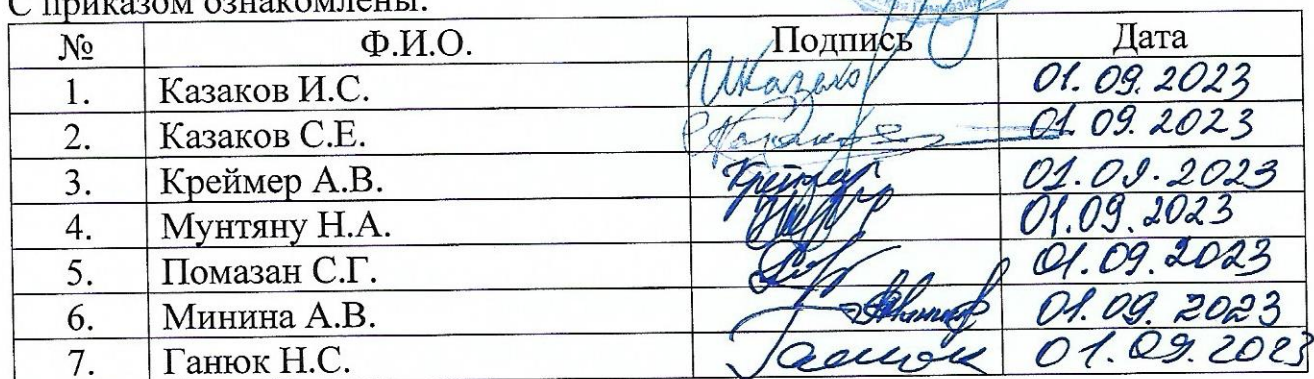 С приказом ознакомлены:
№ Ф.И.О. Подпись Дата
1. Казаков И.С. ИКазаков 01.09.2023
2. Казаков С.Е. 01.09.2023
3. Креймер А.В. Креймер 01.09.2023
4. Мунтяну Н.А. 01.09.2023
5. Помазан С.Г. 01.09.2023
6. Минина А.В. 01.09.2023
7. Ганюк Н.С. Ганюк 01.09.2023